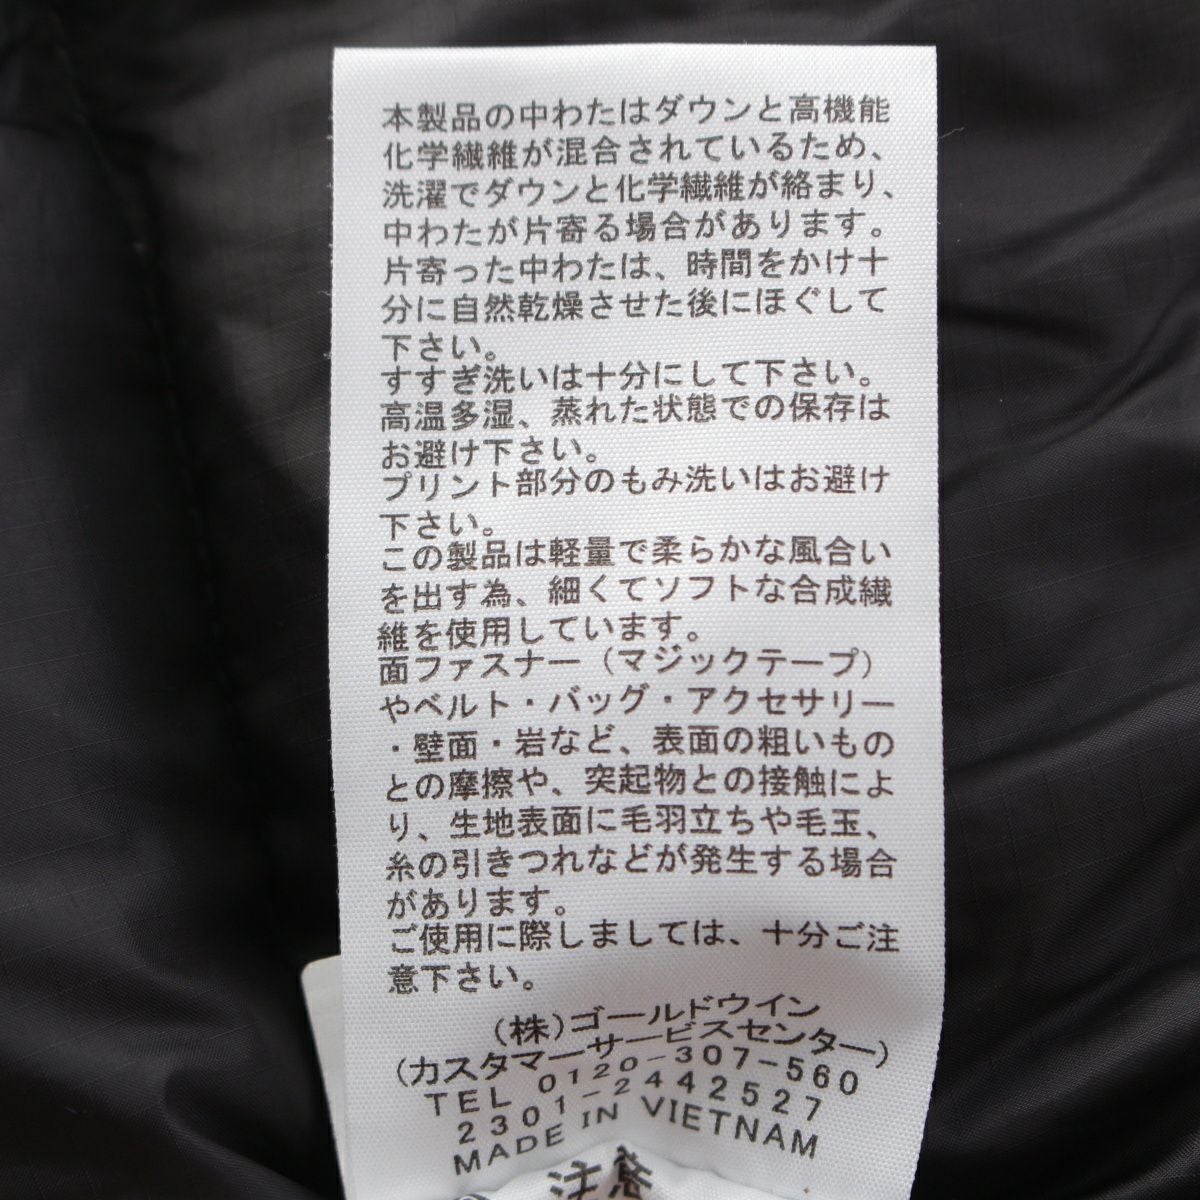 本製品の中わたはダウンと高機能
化学繊維が混合されているため、
洗濯でダウンと化学繊維が絡まり、
中わたが片寄る場合があります。
片寄った中わたは、時間をかけ十
分に自然乾燥させた後にほぐして
下さい。
すすぎ洗いは十分にして下さい。
高温多湿、蒸れた状態での保存は
お避け下さい。
プリント部分のもみ洗いはお避け
下さい。
この製品は軽量で柔らかな風合い
を出す為、細くてソフトな合成繊
維を使用しています。
面ファスナー（マジックテープ）
やベルト・バッグ・アクセサリー
・壁面・岩など、表面の粗いもの
との摩擦や、突起物との接触によ
り、生地表面に毛羽立ちや毛玉、
糸の引きつれなどが発生する場合
があります。
ご使用に際しましては、十分ご注
意下さい。
(株)ゴールドウイン
(カスタマーサービスセンター)
TEL 0120-307-560
2301-2442527
MADE IN VIETNAM
注意